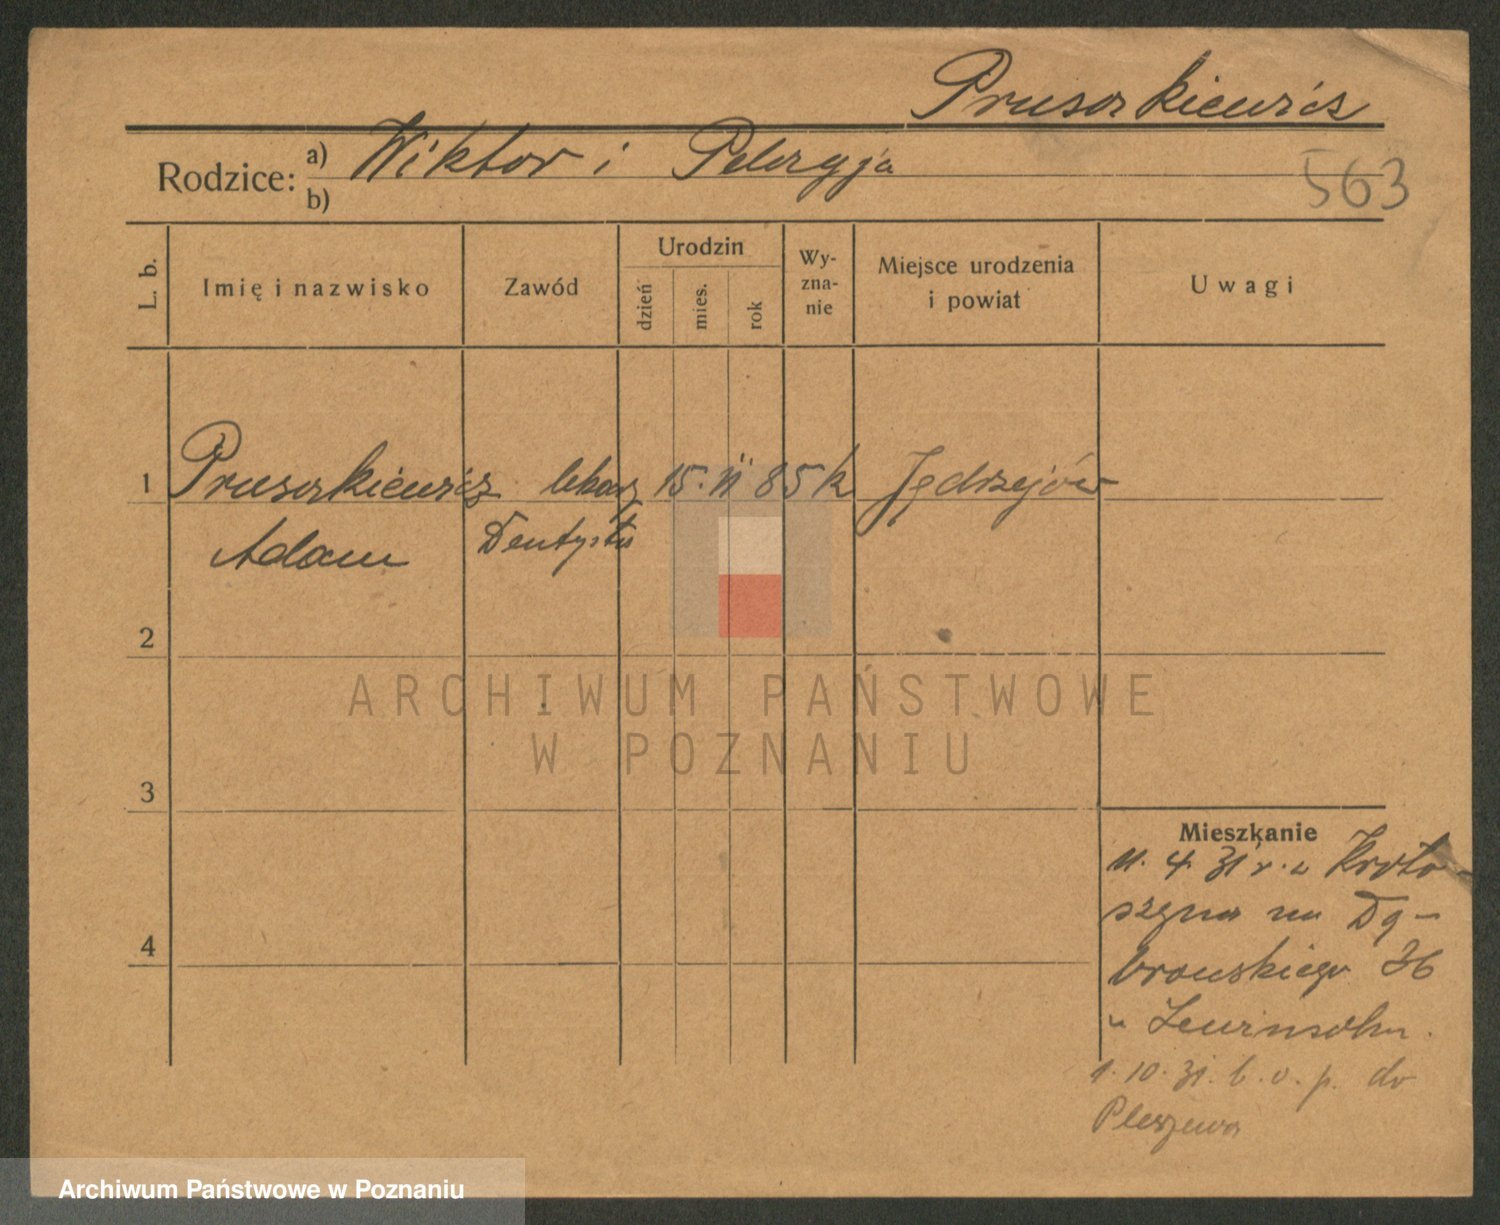 Pruszkiewicz
Rodzice: a) Wiktor i
b)
563
L. b.
Imię i nazwisko
Zawód
Urodzin
dzień
mies.
rok
Wy-
zna-
nie
Miejsce urodzenia
i powiat
Uwagi
1 Pruszkiewicz lekarz 15. II 85 k Jędrzejów
Adam Dentysta
2
3
4
ARCHIWUM PAŃSTWOWE
W POZNANIU
Mieszkanie
11. 4. 31 r. z Kroto-
szyna na Dą-
browskiego 36
u Lewinsohn.
1. 10. 31. b. o. p. do
Pleszewa
Archiwum Państwowe w Poznaniu